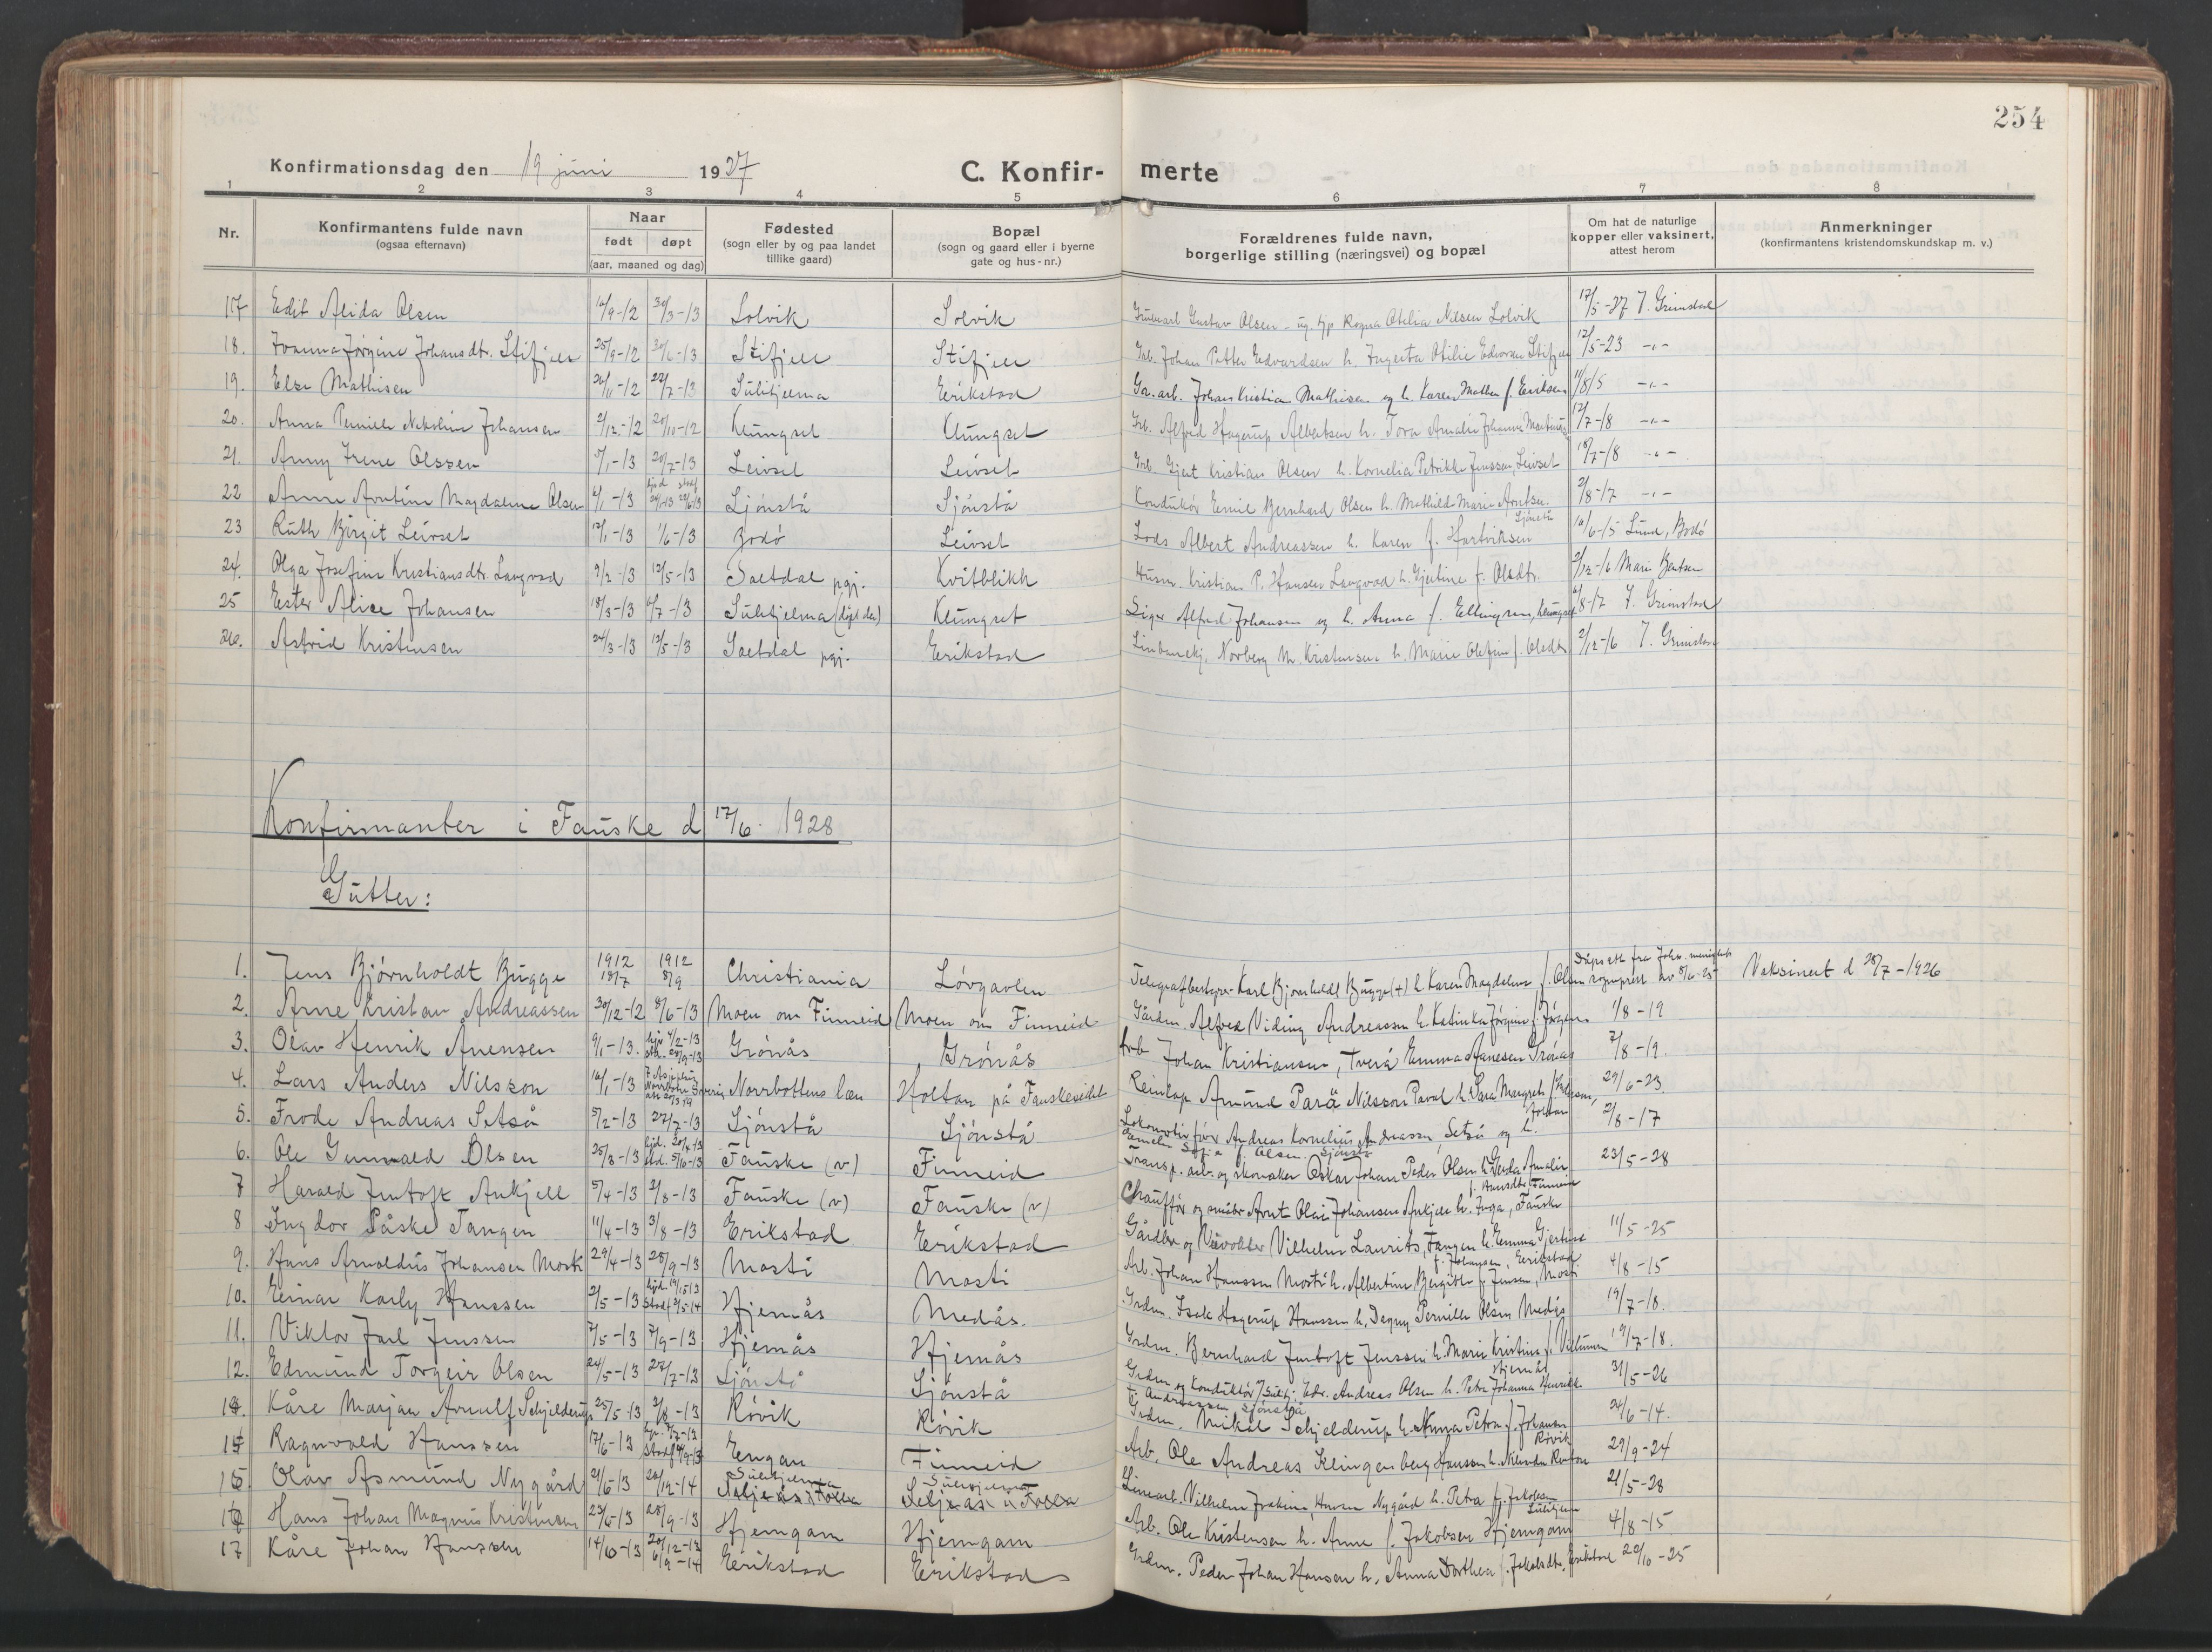 254
Konfirmationsdag den 19 juni 1927 C. Konfir- merte
1 2 3 4 5 6 7 8
Nr. Konfirmantens fulde navn (ogsaa efternavn) Naar født døpt (aar, maaned og dag) Fødested (sogn eller by og paa landet tillike gaard) Bopæl (sogn og gaard eller i byerne gate og hus-nr.) Forældrenes fulde navn, borgerlige stilling (næringsvei) og bopæl Om hat de naturlige kopper eller vaksinert, attest herom Anmerkninger (konfirmantens kristendomskundskap m. v.)
17 Edit Alida Olsen 30/3-13 Solvik Solvik Gustav Olsen Otelia Nilsen Solvik 17/5-27 J. Grimstad
18. Jørgine Johansdtr. Stifjell 25/9-12 30/6-13 Stifjell Stifjell Johan Petter Edvardsen h. Otilie Stifjell 12/5-23 -"-
19. Else Mathisen 22/7-13 Sulitjelma Erikstad Gr.arb. Johan Kristian Mathisen og h. Karen f. Eriksen -"-
20. Anna Pernille Johansen 2/12-12 Klungset Klungset Alfred Hagerup Albertsen h. Tora Amalie Johanne 12/7-18 -"-
21. Anny Irene Olssen 5/1-13 20/7-13 Leivset Leivset Gjert Kristian Olsen h. Kornelia Petrikke Jenssen, Leivset 18/7-18 -"-
22 Anne Magdalene Olsen 6/1-13 Sjønstå Sjønstå Konduktør Emil Bernhard Olsen h. Mathilde Marie Arntsen Sjønstå 2/8-17 -"-
23 Ruth Birgit Leivset 12/1-13 1/6-13 Bodø Leivset Lods Albert Andreassen h. Karen f. Hartviksen 16/6-15 Lund, Bodø
24. Olga Josefine Kristiansdtr. Langvad 9/2-13 12/5-13 Saltdal pgj. Kvitblikk Husm. Kristian P. Hansen Langvad h. Gjertine f. Olsdtr. 2/12-16 Marie Bentsen
25 Ester Alice Johansen 18/3-13 6/7-13 Sulitjelma (døpt der) Klungset Alfred Johansen og h. Anna f. Ellingsen, Klungset J. Grimstad
26. Astrid Kristensen 24/3-13 12/5-13 Saltdal pgj. Erikstad Norberg M. Kristensen h. Marie Olefine f. Olsdtr. 2/12-16 J. Grimstad
Konfirmanter i Fauske d 17/6. 1928
Gutter:
1. Jens Bjørnholdt Bugge 1912 18/7 1912 8/9 Christiania Løvgavlen Telegrafbestyrer Karl Bjørnholdt Bugge (+) h. Karen Magdelene f. Olsen Vaksinert d 28/7-1926
2. Arne Kristian Andreassen 30/12-12 8/6-13 Moen om Finneid Moen om Finneid Gårdm. Alfred Viding Andreassen h. Katinka Jørgine f. Jørgens. 1/8-19
3. Olav Henrik Anensen 9/1-13. hj. 4/2-13 28/9-13 Grønås Grønås Arb Johan Kristiansen, Tverå Emma Anesen Grønås 7/8-19.
4. Lars Anders Nilsson 16/1-13 Norrbottens læn Holtan på Fauskeeidet Reinlap Amund Parä Nilsson Paval h. Sara Margreth Holtan 29/6-23.
5. Frode Andreas Setså 5/2-13 27/7-13 Sjønstå Sjønstå Lokomotivfører Andreas Kornelius Andreassen Setså og h. Sofie f. Olsen. Sjønstå 2/8-17
6. Ole Gunvald Olsen 25/3-13 hjd. 20/4-13 std. 5/10-13 Fauske (v) Finneid Transp. arb. og skomaker Oskar Johan Peder Olsen h. Gerda Amalie f. Hansdtr. Finneid 23/5-28
7 Harald Jentoft Ankjell 5/4-13 2/8-13 Fauske (v) Fauske (v) Chauffør og smed Arnt Olai Johansen Ankjell h. Inga, Fauske
8 Ingdor Påske Tangen 11/4-13 3/8-13 Erikstad Erikstad Gårdbr og Vilhelm Laurits Tangen h. Emma Gjertine f. Johansen, Erikstad 11/5-25
9. Hans Arnoldus Johansen Mosti 29/4-13 28/9-13 Mosti Mosti Arb. Johan Hanssen Mosti h. Albertine Bergitte f. Jensen, Mosti 4/8-15
10. Einar Karly Hanssen 2/5-13 Hjemås Medås. Grdm. Isak Hagerup Hanssen h. Dagny Pernille Olsen Medås 19/7-18.
11. Viktor Jarl Jenssen 7/5-13 7/9-13 Hjemås Hjemås Grdm. Bernhard Jentoft Jenssen h. Marie Kristine f. Villumsen Hjemås 19/7-18.
12. Edmund Torgeir Olsen 24/5-13 27/7-13 Sjønstå Sjønstå Grdm. og Konduktør v/Sulitj. Edv. Andreas Olsen h. Petra Johanna Henrikke f. Andreassen Sjønstå 31/5-26
13. Kåre Marjan Arnulf Schjelderup 25/5-13 2/8-13 Røvik Røvik Grdm. Mikal Schjelderup h. Anna Petra f. Johansen Røvik 24/6-14.
14 Ragnvald Hanssen 17/6-13 Engan Finneid Arb. Ole Andreas Klingenberg Hanssen h. 29/9-24
15 Olav Asmund Nygård 21/6-13 26/12-14 Sulitjelma Sulitjelma Linearb. Vilhelm Joakim Hansen Nygård h. Petra f. Jakobsen Sulitjelma 21/5-28
16 Hans Johan Magnus Kristensen 23/6-13 28/9-13 Hjemgam Hjemgam Arb. Ole Kristensen h. Anne f. Jakobsen Hjemgam 4/8-15
17 Kåre Johan Hanssen 14/10-13 20/12-13 6/9-14 Erikstad Erikstad Grdm. Peder Johan Hansen h. Anna Dorthea f. Jakobsdtr. Erikstad 20/10-25